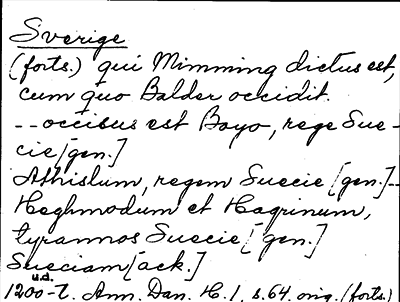 Sverige
(forts.) qui Mimming dictus est,
cum quo Balder occidit.
--occisus est Boyo, rege Sue-
cie [gen.]
Athislum, regem Suecie [gen.]--
Heghmodum et Hagrinum,
tyrannos Suecie [gen.]
Sueciam [ack.]
u.d.
1200-t. Ann. Dan. H. 1. s. 64 orig. (forts.)